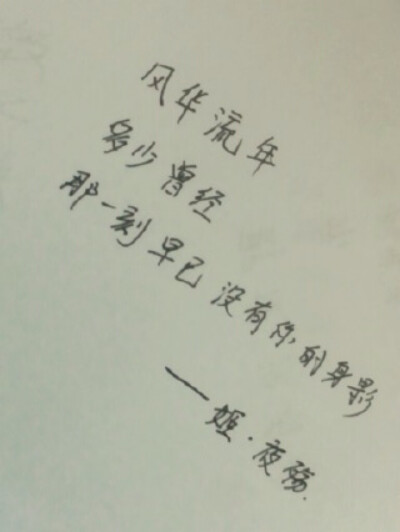 风华流年
多少曾经
那一刻早已没有你的身影
——姬·夜殇.